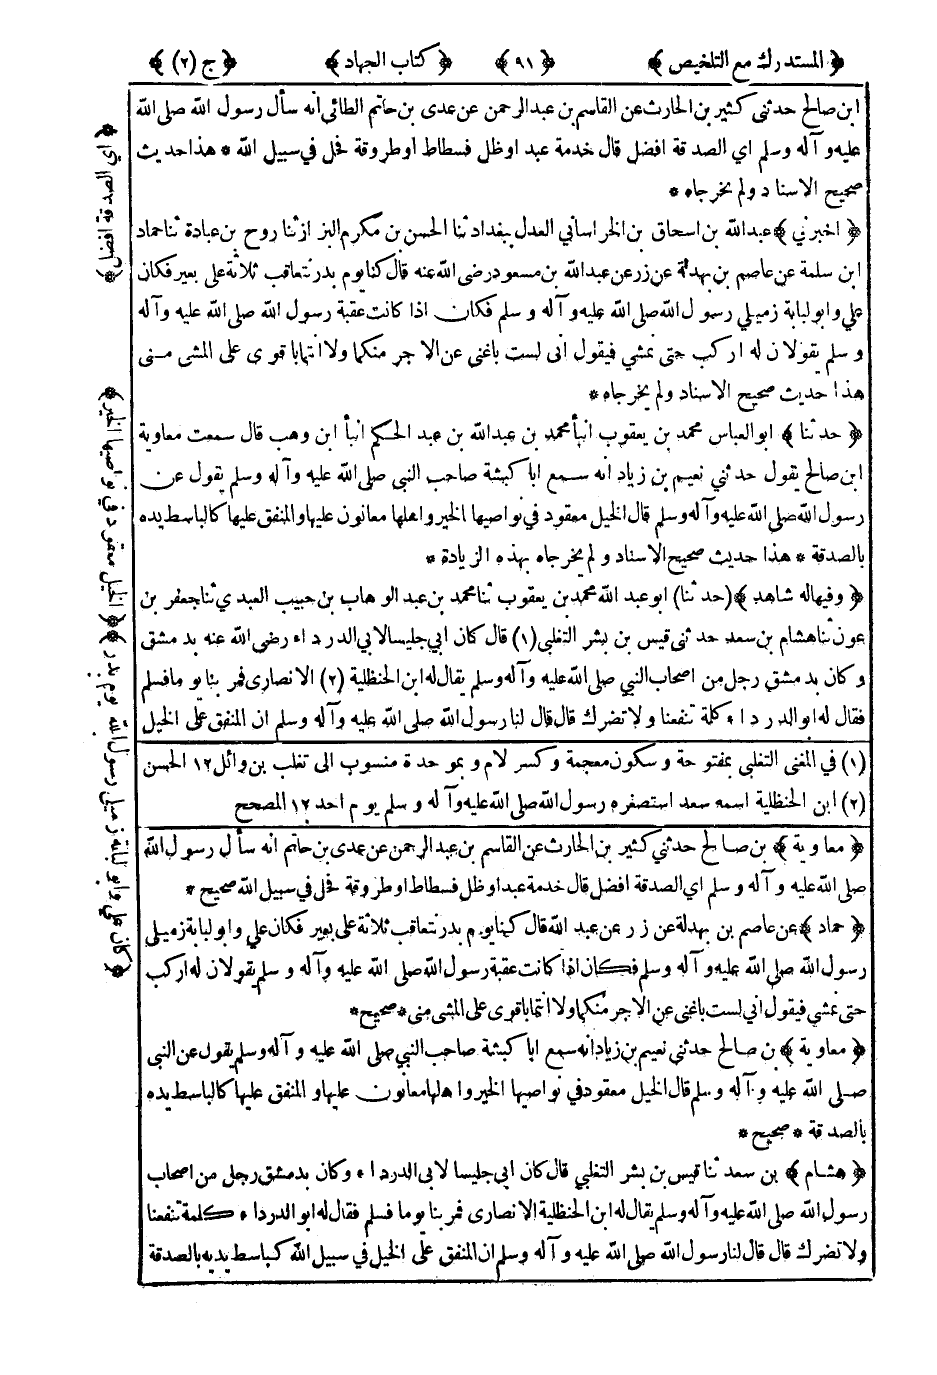 ﴿ المستدرك مع التلخيص ﴾ ﴿ ٩١ ﴾ ﴿ كتاب الجهاد ﴾ ﴿ ج (٢) ﴾
ابن صالح حدثنى كثير بن الحارث عن القاسم بن عبدالرحمن عن عدى بن حاتم الطائى انه سأل رسول الله صلى الله
عليه و آله وسلم اي الصدقة افضل قال خدمة عبد اوظل فسطاط أوطروقة فحل في سبيل الله * هذا حديث
صحيح الاسناد ولم يخرجاه *
﴿ اخبرني ﴾ عبدالله بن اسحاق بن الخراساني العدل ببغداد ثنا الحسن بن مكرم البزاز ثنا روح بن عبادة ثنا حماد
ابن سلمة عن عاصم بن بهدلة عن زر عن عبدالله بن مسعود رضى الله عنه قال كنا يوم بدر نتعاقب ثلاثة على بعير فكان
علي وابو لبابة زميلي رسول الله صلى الله عليه و آله و سلم فكان اذا كانت عقبة رسول الله صلى الله عليه وآله
و سلم يقولان له اركب حتى نمشي فيقول انى لست باغنى عن الاجر منكما ولا انتما باقوى على المشى منى
هذا حديث صحيح الاسناد ولم يخرجاه *
﴿ حدثنا ﴾ ابو العباس محمد بن يعقوب انبأ محمد بن عبدالله بن عبد الحكم انبأ ابن وهب قال سمعت معاوية
ابن صالح يقول حدثني نعيم بن زياد انه سمع ابا كبشة صاحب النبي صلى الله عليه و آله وسلم يقول عن
رسول الله صلى الله عليه وآله وسلم قال الخيل معقود في نواصيها الخير و اهلها معانون عليها والمنفق عليها كالباسط يده
بالصدقة * هذا حديث صحيح الاسناد و لم يخرجاه بهذه الزيادة *
﴿ وفيها له شاهد ﴾ (حدثنا) ابو عبد الله محمد بن يعقوب ثنا محمد بن عبد الوهاب بن حبيب العبدي ثنا جعفر بن
عون ثنا هشام بن سعد حدثنى قيس بن بشر التغلبي (١) قال كان ابي جليسا لابي الدرداء رضى الله عنه بدمشق
و كان بدمشق رجل من اصحاب النبي صلى الله عليه وآله وسلم يقال له ابن الحنظلية (٢) الانصارى فمر بنا يوما فسلم
فقال له ابو الدرداء كلمة تنفعنا ولا تضرك قال قال لنا رسول الله صلى الله عليه وآله وسلم ان المنفق على الخيل
(١) في المغنى التغلبى بمفتوحة و سكون معجمة و كسر لام و بموحدة منسوب الى تغلب بن وائل ١٢ الحسن
(٢) ابن الحنظلية اسمه سعد استصغره رسول الله صلى الله عليه وآله و سلم يوم احد ١٢ المصحح
﴿ معاوية ﴾ بن صالح حدثنى كثير بن الحارث عن القاسم بن عبدالرحمن عن عدى بن حاتم انه سأل رسول الله
صلى الله عليه و آله و سلم اي الصدقة افضل قال خدمة عبد اوظل فسطاط اوطروقة فحل في سبيل الله صحيح *
﴿ حماد ﴾ عن عاصم بن بهدلة عن زر عن عبد الله قال كنا يوم بدر نتعاقب ثلاثة على بعير فكان علي وابو لبابة زميلي
رسول الله صلى الله عليه و آله وسلم فكان اذا كانت عقبة رسول الله صلى الله عليه و آله و سلم يقولان له اركب
حتى نمشى فيقول انى لست باغنى عن الاجر منكما ولا انتما باقوى على المشى منى * صحيح *
﴿ معاوية ﴾ بن صالح حدثنى نعيم بن زياد انه سمع ابا كبشة صاحب النبي صلى الله عليه و آله وسلم يقول عن النبى
صلى الله عليه و آله و سلم قال الخيل معقود في نواصيها الخير و اهلها معانون عليها و المنفق عليها كالباسط يده
بالصدقة * صحيح *
﴿ هشام ﴾ بن سعد ثنا قيس بن بشر التغلبي قال كان ابي جليسا لابى الدرداء وكان بدمشق رجل من اصحاب
رسول الله صلى الله عليه وآله وسلم يقال له ابن الحنظلية الانصارى فمر بنا يوما فسلم فقال له ابو الدرداء كلمة تنفعنا
ولا تضرك قال قال لنا رسول الله صلى الله عليه و آله وسلم ان المنفق على الخيل في سبيل الله كباسط يديه بالصدقة
﴿ اي الصدقة افضل ﴾
﴿ الخيل معقود في نواصيها الخير ﴾
﴿ كان علي وابو لبابة زميلى رسول الله يوم بدر ﴾